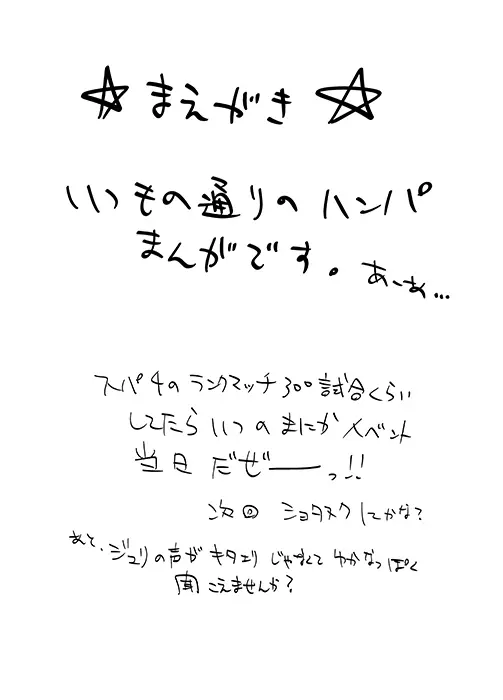 ☆まえがき☆
いつもの通りのハンパ
まんがです。あーあ...
スパ4のランクマッチ300試合くらい
してたらいつのまにかイベント
当日だぜーーっ!!
次回ショタスクにかな?
あと、ジュリの声がキタエリじゃなくてわかなっぽく
聞こえませんか?